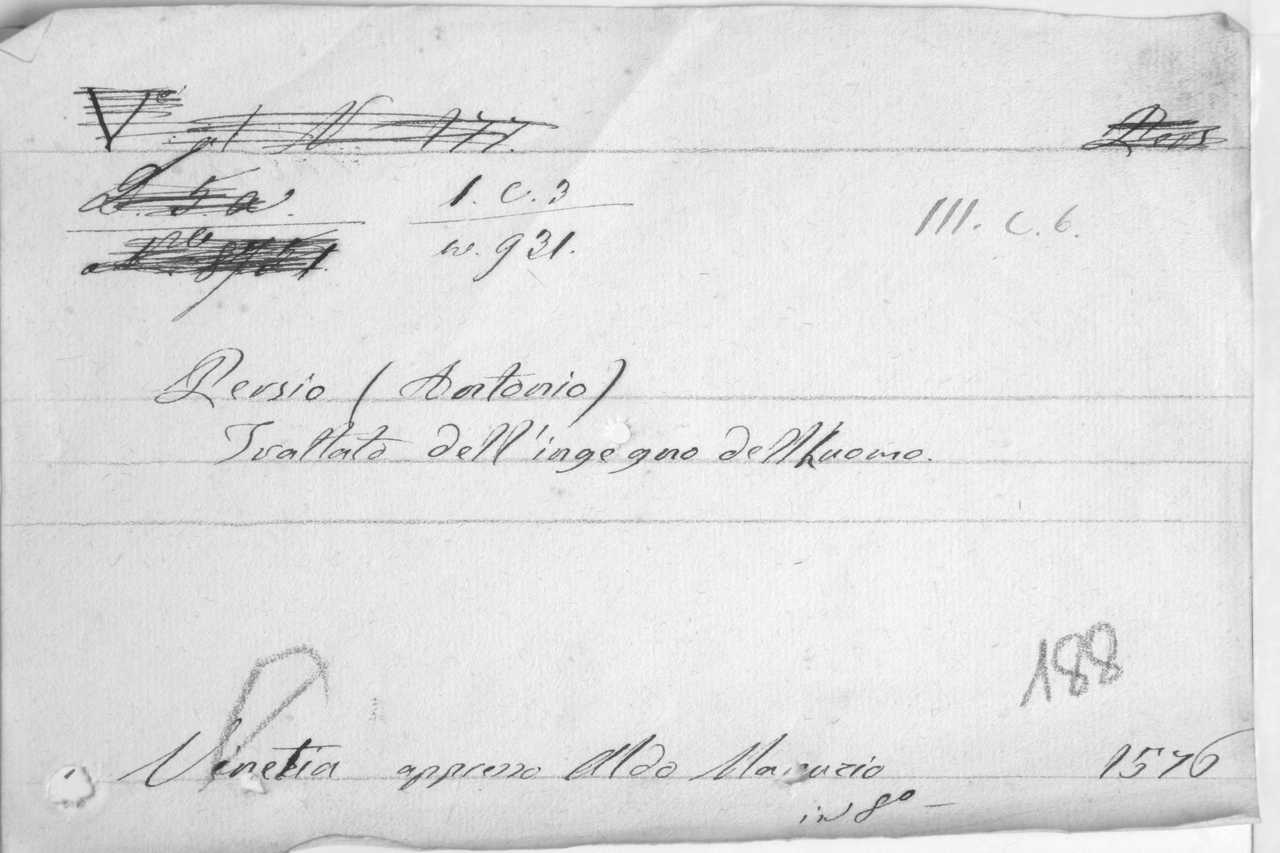 al N. 177.
Pers
1. C. 3
III. C. 6.
n. 931.
Persio (Antonio)
Trattato dell'ingegno dell'huomo.
188
P
Vinetia appresso Aldo Manuzio 1576
in 8º –